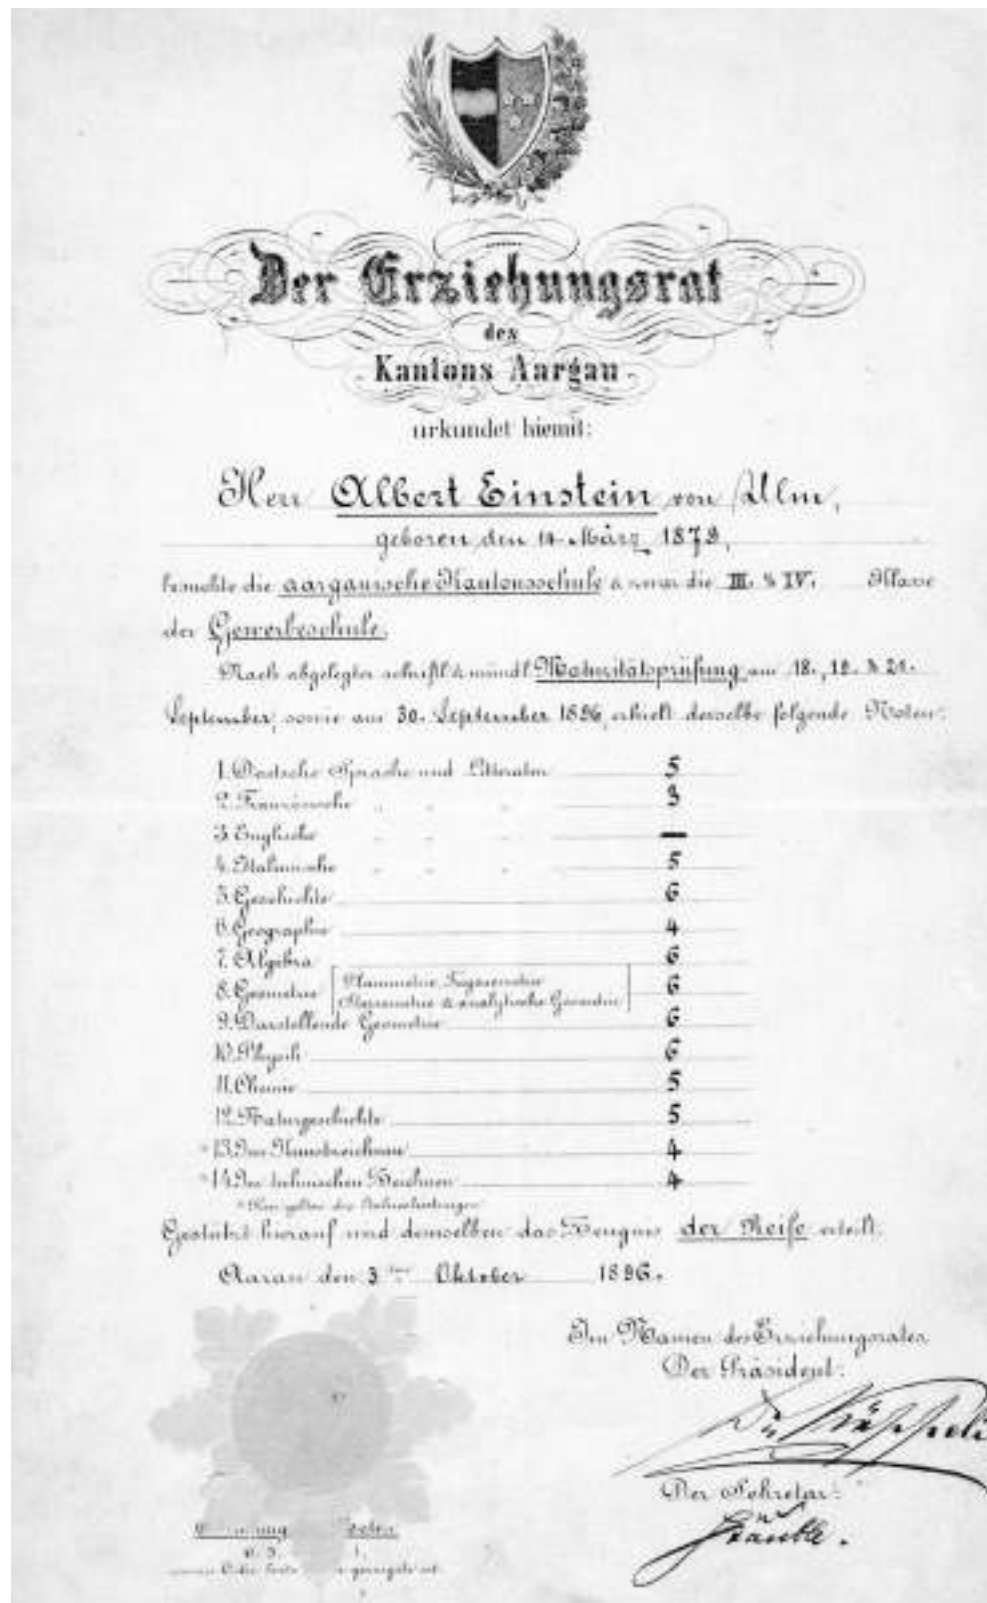 Der Erziehungsrat
des
Kantons Aargau
urkundet hiemit:
Herr Albert Einstein von Ulm,
geboren den 14. März 1879,
besuchte die aargauische Kantonsschule & zwar die III. & IV. Klasse
der Gewerbeschule.
Nach abgelegter schriftl. & mündl. Maturitätsprüfung am 18., 19. & 21.
September, sowie am 30. September 1896, erhielt derselbe folgende Noten:
1. Deutsche Sprache und Litteratur 5
2. Französische " " " 3
3. Englische " " " —
4. Italienische " " " 5
5. Geschichte 6
6. Geographie 4
7. Algebra 6
8. Geometrie [Planimetrie, Trigonometrie
Stereometrie & analytische Geometrie] 6
9. Darstellende Geometrie 6
10. Physik 6
11. Chemie 5
12. Naturgeschichte 5
* 13. Im Kunstzeichnen 4
* 14. Im technischen Zeichnen 4
* Hier gelten die Jahresleistungen.
Gestützt hierauf wird demselben das Zeugnis der Reife erteilt.
Aarau den 3ten Oktober 1896.
Im Namen des Erziehungsrates
Der Präsident:
Der Sekretär:
Stäuble.